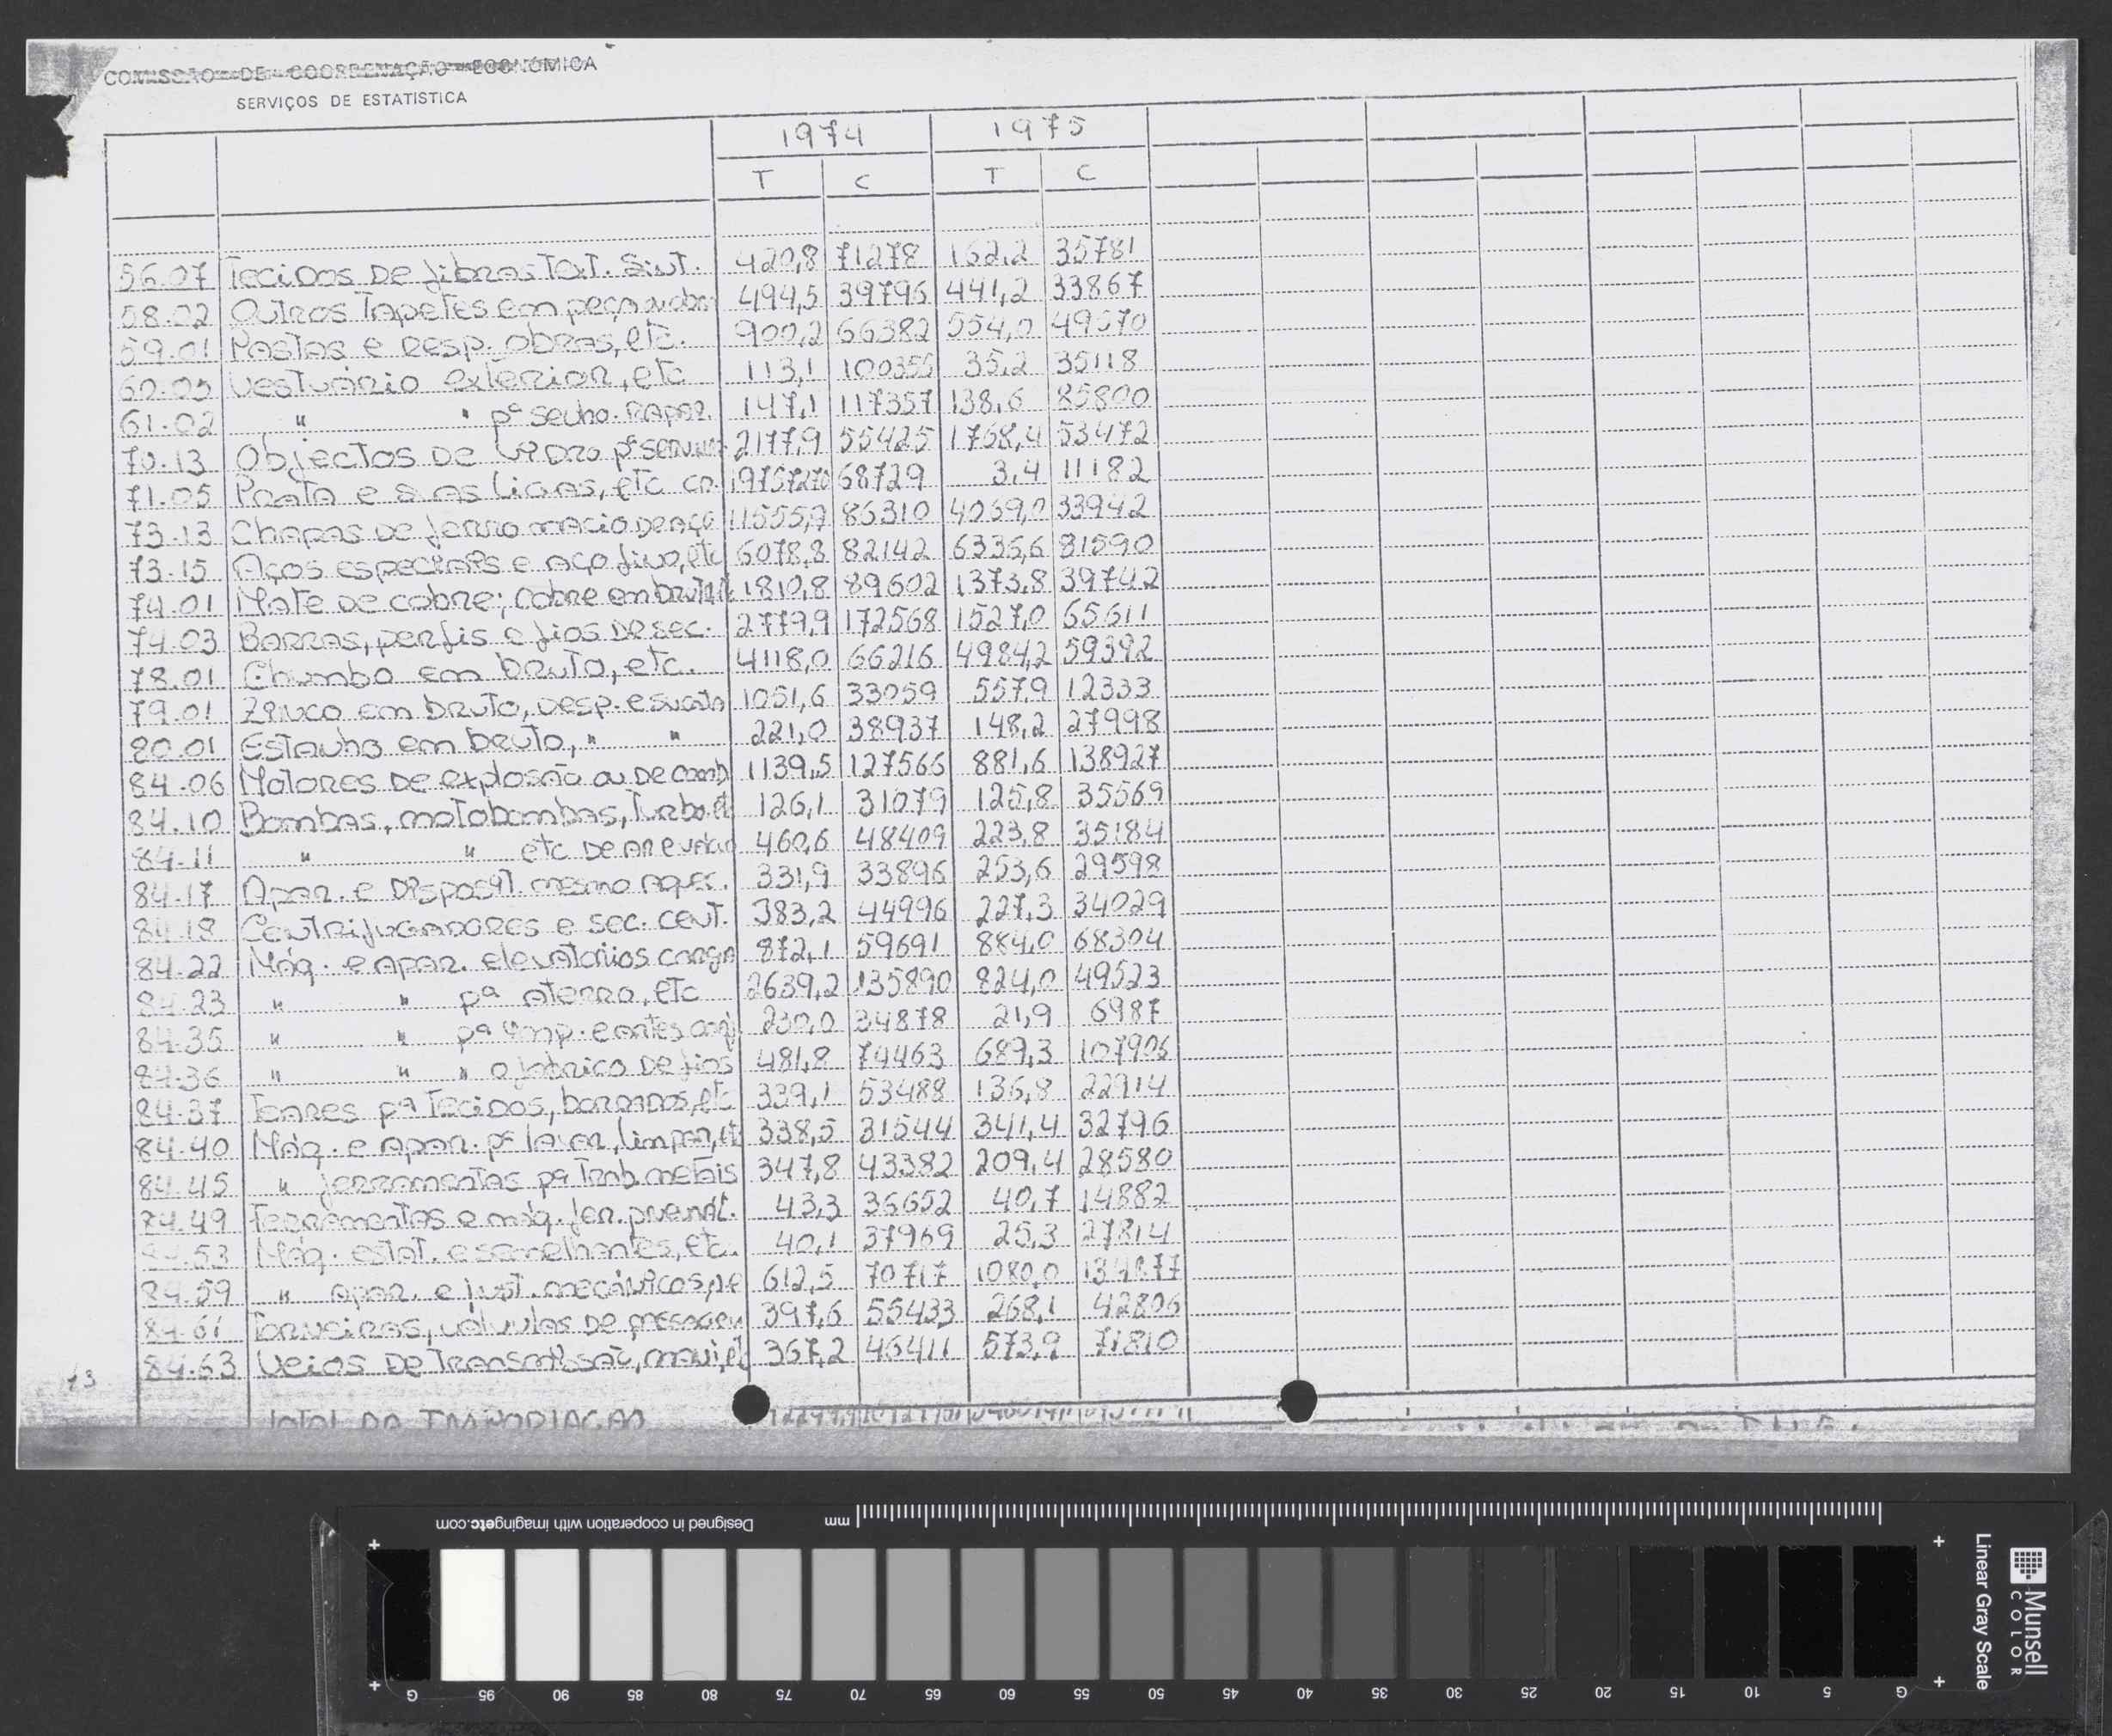 COMISSÃO DE COORDENAÇÃO ECONÓMICA
SERVIÇOS DE ESTATISTICA
1974 1975
T C T C
56.07 Tecidos de fibras Text. Sint. 420,8 71278 162,2 35781
58.02 Outros Tapetes em peça ou obra 494,5 39796 441,2 33867
59.01 Pastas e resp. obras, etc. 900,2 66382 554,0 49570
60.05 Vestuário exterior, etc 113,1 100355 35,2 35118
61.02 " " pª senho. rapar. 147,1 117357 138,6 85800
70.13 Objectos de vidro pª 2177,9 55425 1768,4 53472
71.05 Prata e suas ligas, etc 68729 3,4 11182
73.13 Chapas de ferro macio ou aço 11555,7 86310 4069,0 33942
73.15 Aços especiais e aço fino, etc 6078,8 82142 6336,6 81590
74.01 Mate de cobre; cobre em bruto 1810,8 89602 1373,8 39742
74.03 Barras, perfis e fios de sec. 2779,9 172568 1527,0 65611
78.01 Chumbo em bruto, etc. 4118,0 66216 4984,2 59392
79.01 Zinco em bruto, desp. e sucata 1051,6 33059 557,9 12333
80.01 Estanho em bruto, " " 221,0 38937 148,2 27998
84.06 Motores de explosão ou de comb 1139,5 127566 881,6 138927
84.10 Bombas, motobombas, Turbo. etc 126,1 31079 125,8 35569
84.11 " " etc. de ar e vácuo 460,6 48409 223,8 35184
84.17 Apar. e Disposit. mesmo aquec. 331,9 33896 253,6 29598
84.18 Centrifugadores e sec. cent. 383,2 44996 227,3 34029
84.22 Máq. e apar. elevatórios carga 872,1 59691 884,0 68304
84.23 " " pª aterro, etc 2639,2 135890 824,0 49523
84.35 " " pª imp. e artes 230,0 34878 21,9 6987
84.36 " " " o fabrico de fios 481,8 74463 689,3 107906
84.37 Teares pª Tecidos, bordados, etc 339,1 53488 136,8 22914
84.40 Máq. e apar. pª lavar, limpar, etc 338,5 31544 341,4 32796
84.45 " ferramentas pª Trab. metais 347,8 43382 209,4 28580
84.49 Ferramentas e máq. fer. pneumát. 43,3 36652 40,7 14882
84.53 Máq. estat. e semelhantes, etc. 40,1 37969 25,3 27814
84.59 " Apar. e inst. mecânicos 612,5 70717 1080,0 134877
84.61 Torneiras, válvulas de 397,6 55433 268,1 42806
84.63 Veios de Transmissão, maniv, etc 367,2 46411 573,9 71810
13
Total da IMPORTAÇÃO
Designed in cooperation with imagingetc.com
mm
G 95 90 85 80 75 70 65 60 55 50 45 40 35 30 25 20 15 10 5 G
Linear Gray Scale
Munsell
COLOR